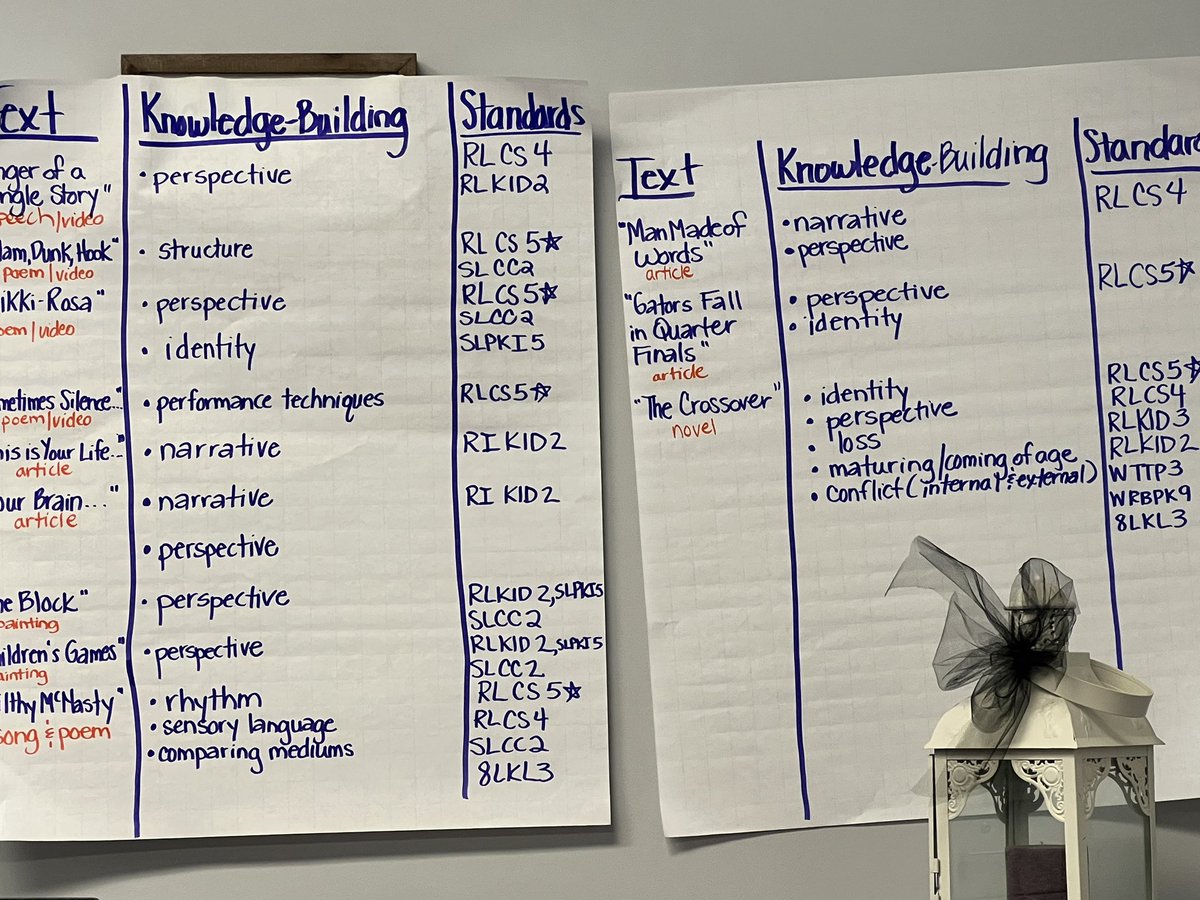 ext
Knowledge-Building
Standards
nger of a
ngle Story"
eech/video
• perspective
RL CS 4
RL KID2
lam, Dunk, Hook"
poem/video
• structure
RL CS 5☆
SL CC2
ikki-Rosa"
oem/video
• perspective
• identity
RLCS5☆
SLCC2
SLPKI5
metimes Silence..."
poem/video
• performance techniques
RLCS5☆
his is Your Life..."
article
• narrative
RI KID2
our Brain..."
article
• narrative
• perspective
RI KID2
he Block"
painting
• perspective
RLKID 2, SLPKI5
SLCC2
ildren's Games"
ainting
• perspective
RLKID 2, SLPKI5
SLCC2
lthy McNasty"
song & poem
• rhythm
• sensory language
• comparing mediums
RL CS 5☆
RL CS4
SLCC2
8LKL3
Text
Knowledge-Building
Standard
"Man Made of
Words"
article
• narrative
• perspective
RL CS4
"Gators Fall
in Quarter
Finals"
article
• perspective
• identity
RLCS5☆
"The Crossover"
novel
• identity
• perspective
• loss
• maturing/coming of age
• conflict (internal & external)
RLCS5☆
RLCS4
RLKID3
RLKID2
WTTP3
WRBPK9
8LKL3